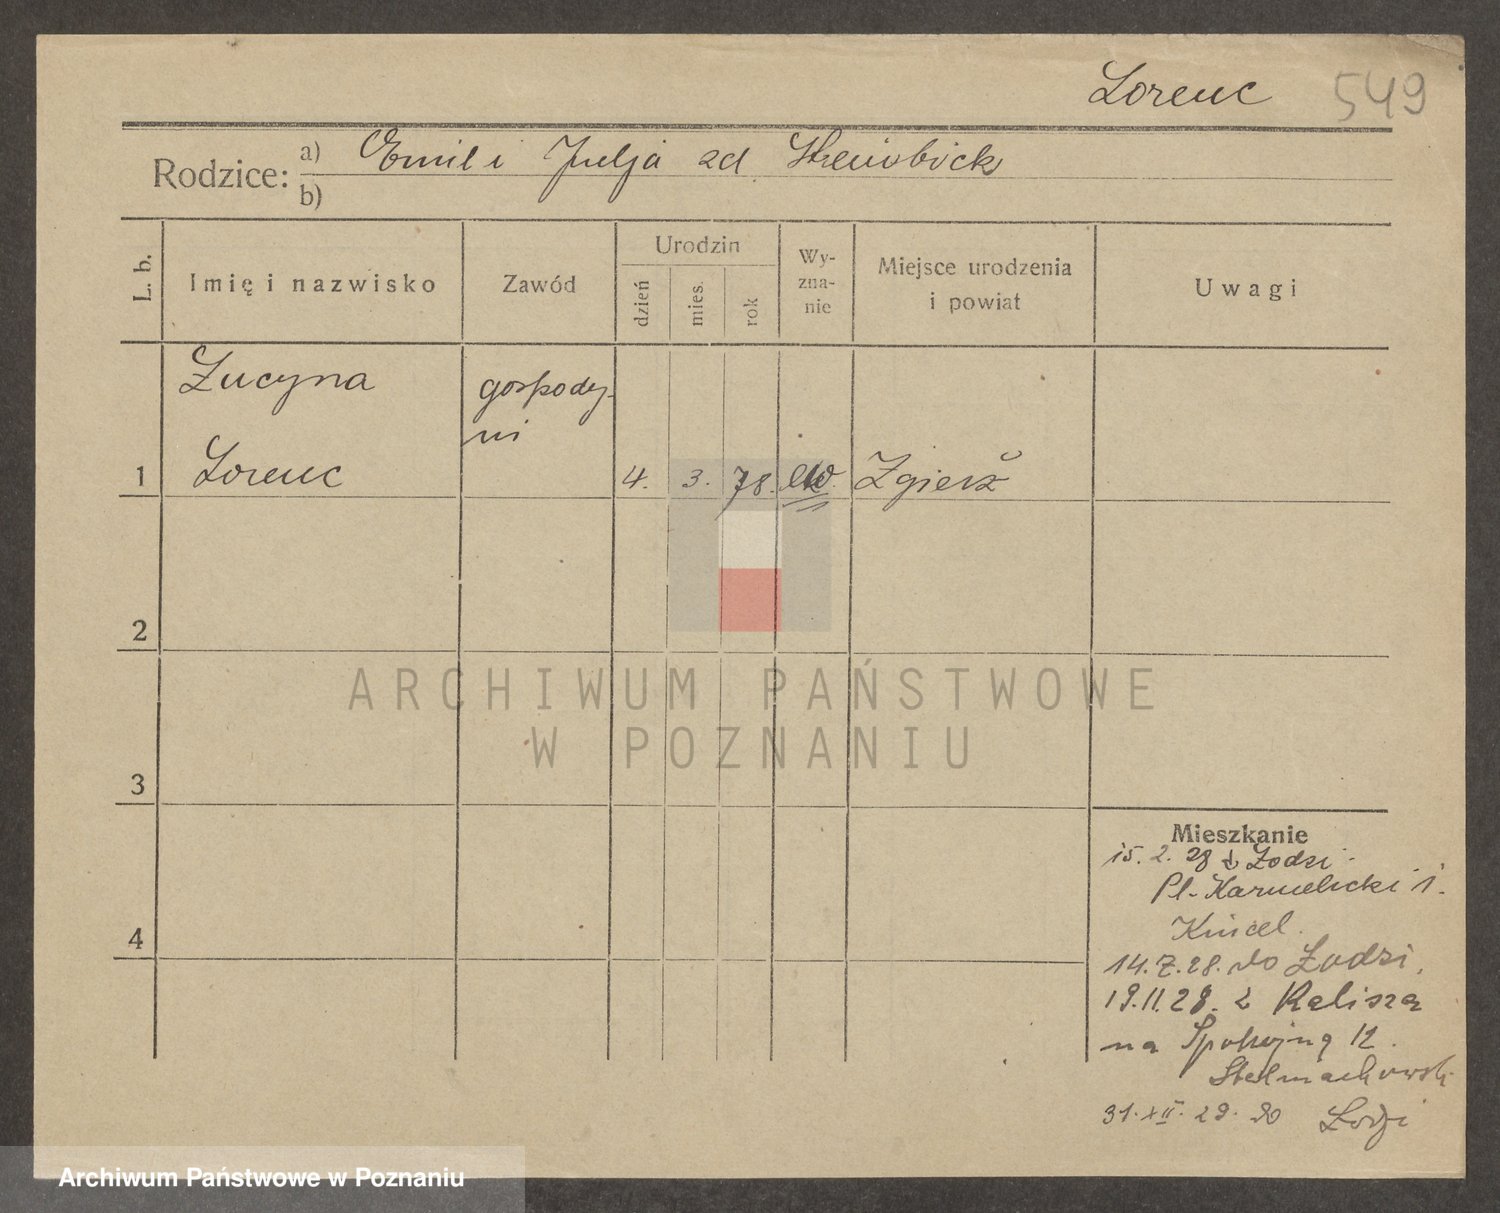 Lorenc 549
Rodzice: a) Emil i Julja zd
b)
L. b.
Imię i nazwisko
Zawód
Urodzin
dzień
mies.
rok
Wy-
zna-
nie
Miejsce urodzenia
i powiat
Uwagi
Łucyna
gospody-
ni
1 Lorenc 4. 3. 78. ew. Zgierz
2
3
4
Mieszkanie
15. 2. 28 z Łodzi.
Pl. Karmelicki 1.
14.7.28. do Łodzi.
19.11.28. z Kalisza
na Spokojną 12.
Stelmachowski
31.XII.29. do Łodzi
ARCHIWUM PAŃSTWOWE
W POZNANIU
Archiwum Państwowe w Poznaniu